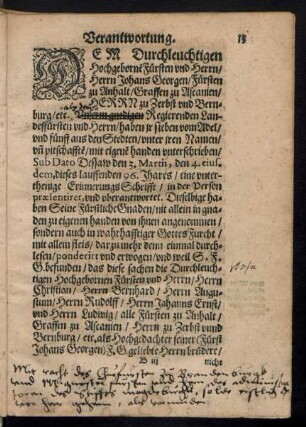 Verantwortung. 13
DEM Durchleuchtigen
Hochgebornē Fürsten vnd Herrn/
Herrn Johans Georgen/ Fürsten
zu Anhalt/ Graffen zu Ascanien/
HERRN zu Zerbst vnd Bern-
burg/ etc. Vnserm gnedigen Regierenden Lan-
desfürsten vnd Herrn/ haben jr sieben vom Adel/
vnd fünff aus den Stedten/ vnter jren Namen/
vñ pitschafft/ mit eigenē handen vnterschrieben/
Sub Dato Dessaw den 3. Martij, den 4. eius-
dem, dieses lauffenden 96. Jhares/ eine vnter-
thenige Erinnerungs Schrifft/ in der Person
præsentiret, vnd vberantwortet. Dieselbige ha-
ben Seine Fürstliche Gnaden/ nit allein in gna-
den zu eigenen handen von jhnen angenommen/
sondern auch in warhafftiger Gottes Furcht/
mit allem fleis/ dar zu mehr denn einmal durch-
lesen/ ponderirt vnd erwogen/ vnd weil S. F.
G. befunden/ das diese sachen die Durchleuch-
tigen Hochgebornen Fürsten vnd Herrn/ Herrn
Christian/ Herrn Bernhard/ Herrn Augu-
stum/ Herrn Rudolff/ Herrn Johanns Ernst/
vnd Herrn Ludwig/ alle Fürsten zu Anhalt/
Graffen zu Ascanien/ Herrn zu Zerbst vnnd
Bernburg/ etc. als Hochgedachter seiner Fürst
Johans Georgen/ F. G. geliebte Herrn brüdere/
B iij nicht
Mit rath des Churfursten zu Brandenburgk
vnd